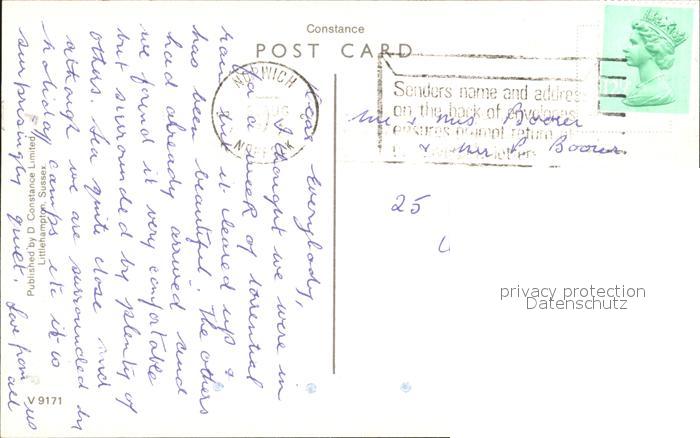 Constance
POST CARD
NORWICH
NORFOLK
Senders name and address
on the back of envelopes
ensures prompt return
Mr & Mrs Boorer
& Mr P Boorer
25
privacy protection
Datenschutz
Dear Everybody,
I thought we were in
for a week of torrential
rain but it cleared up &
has been beautiful. The others
had already arrived and
we found it very comfortable
but surrounded by plenty of
others. Sea quite close and
although we are surrounded by
holiday camps etc it is
surprisingly quiet. Love from us
all
Published by D. Constance Limited,
Littlehampton, Sussex.
V 9171